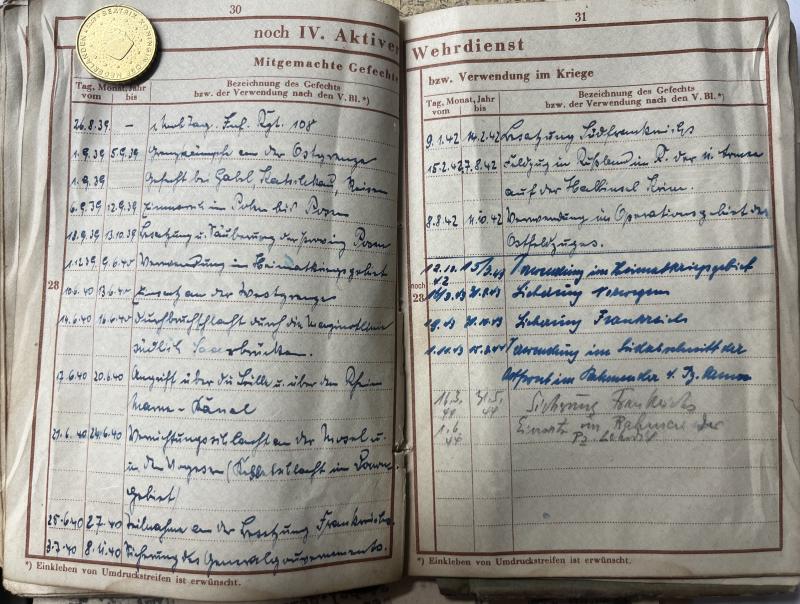 BEATRIX KONINGIN DER NEDERLANDEN
30
noch IV. Aktiver
Mitgemachte Gefechte
Tag, Monat, Jahr
vom bis
Bezeichnung des Gefechts
bzw. der Verwendung nach den V. Bl.*)
26.8.39 – Inf. Rgt. 108
1.9.39 5.9.39 Grenzkämpfe an der Ostgrenze
1.9.39 Gefecht bei
6.9.39 12.9.39 Einmarsch in Polen bis Posen
13.10.39 Besetzung u. Säuberung der Provinz Posen
1.12.39 9.6.40 Verwendung im Heimatkriegsgebiet
28
10.6.40 13.6.40 Einsatz an der Westgrenze
14.6.40 16.6.40 Durchbruchschlacht durch die Maginotlinie
südlich Saarbrücken.
17.6.40 20.6.40 Angriff über die Seille u. über den Rhein
Marne-Kanal
21.6.40 24.6.40 Vernichtungsschlacht an der Mosel u.
in den Vogesen ( im
gebiet)
25.6.40 2.7.40 Teilnahme an der Besetzung Frankreichs
3.7.40 8.11.40 Sicherung des Generalgouvernements.
*) Einkleben von Umdruckstreifen ist erwünscht.
31
Wehrdienst
bzw. Verwendung im Kriege
Tag, Monat, Jahr
vom bis
Bezeichnung des Gefechts
bzw. der Verwendung nach den V. Bl.*)
9.1.42 14.2.42 Besatzung Südfrankreichs
15.2.42 7.8.42 Feldzug in Rußland im R. der 11. Armee
auf der Halbinsel Krim.
8.8.42 11.10.42 Verwendung im Operationsgebiet des
Ostfeldzuges.
12.10.42 Verwendung im Heimatkriegsgebiet
noch
28
Sicherung Norwegen
Sicherung Frankreichs
Verwendung im Südabschnitt der
Ostfront im Rahmen der 1. Pz. Armee
16.3.44 31.5.44 Sicherung Frankreichs
1.6.44 Einsatz im Rahmen der
Pz. Lehrdiv.
*) Einkleben von Umdruckstreifen ist erwünscht.